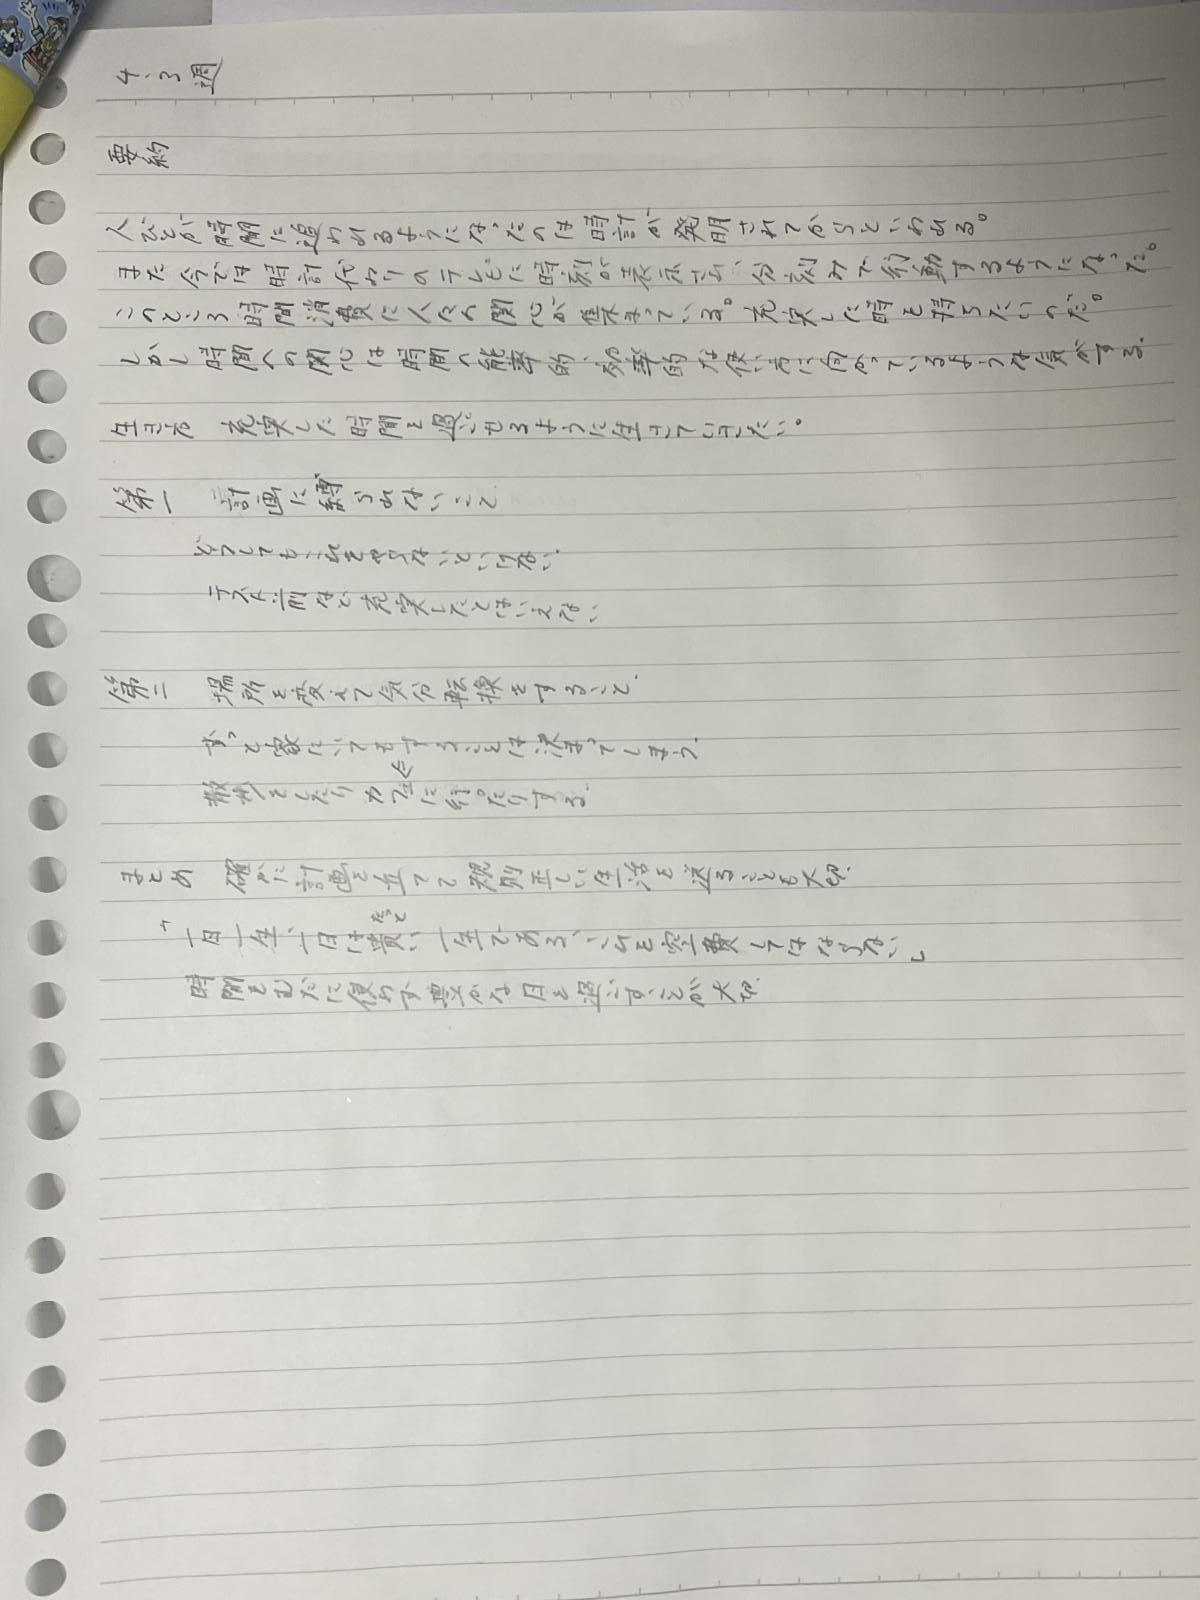 4.3週
要約
人びとが時間に追われるようになったのは時計が発明されてからといわれる。
また今では時計代わりのテレビに時刻が表示され、分刻みで行動するようになった。
このところ時間消費に人々の関心が集まっている。充実した時を持ちたいのだ。
しかし時間への関心は時間の能率的、効率的な使い方に向かっているような気がする。
生き方 充実した時間を過ごせるように生きていきたい。
第一 計画に縛られないこと
どうしてもこれをやらないといけない。
テスト前など充実したとはいえない
第二 場所を変えて気分転換をすること。
ずっと家にいてもすることは決まってしまう。
散歩をしたりカフェに行ったりする。
まとめ 確かに計画を立てて規則正しい生活を送ることも大切.
「一日一生、一日は貴い一生である、これを空費してはならない」
時間をむだに使わず豊かな日を過ごすことが大切.